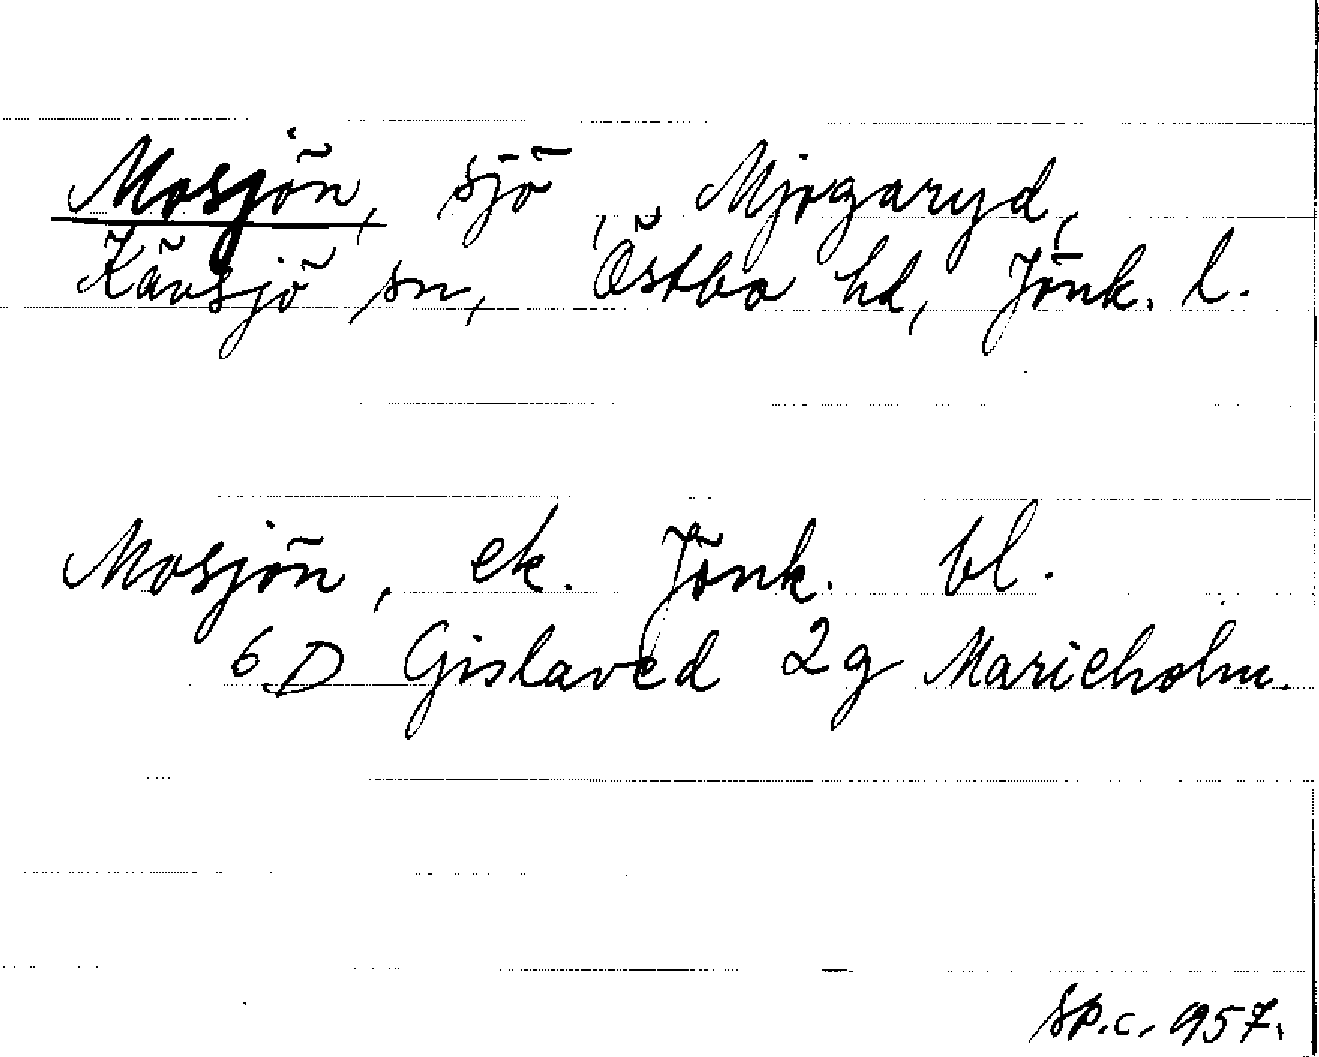 Mosjön, sjö, Mjogaryd,
Kävsjö sn, Östbo hd, Jönk. l.
Mosjön, ek. Jönk. bl.
6 D Gislaved 2g Marieholm.
Sp.c. 957.